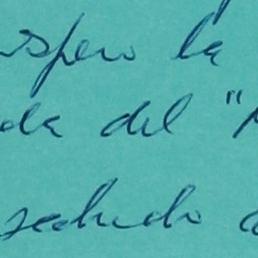 espero la
da del "
saludo a